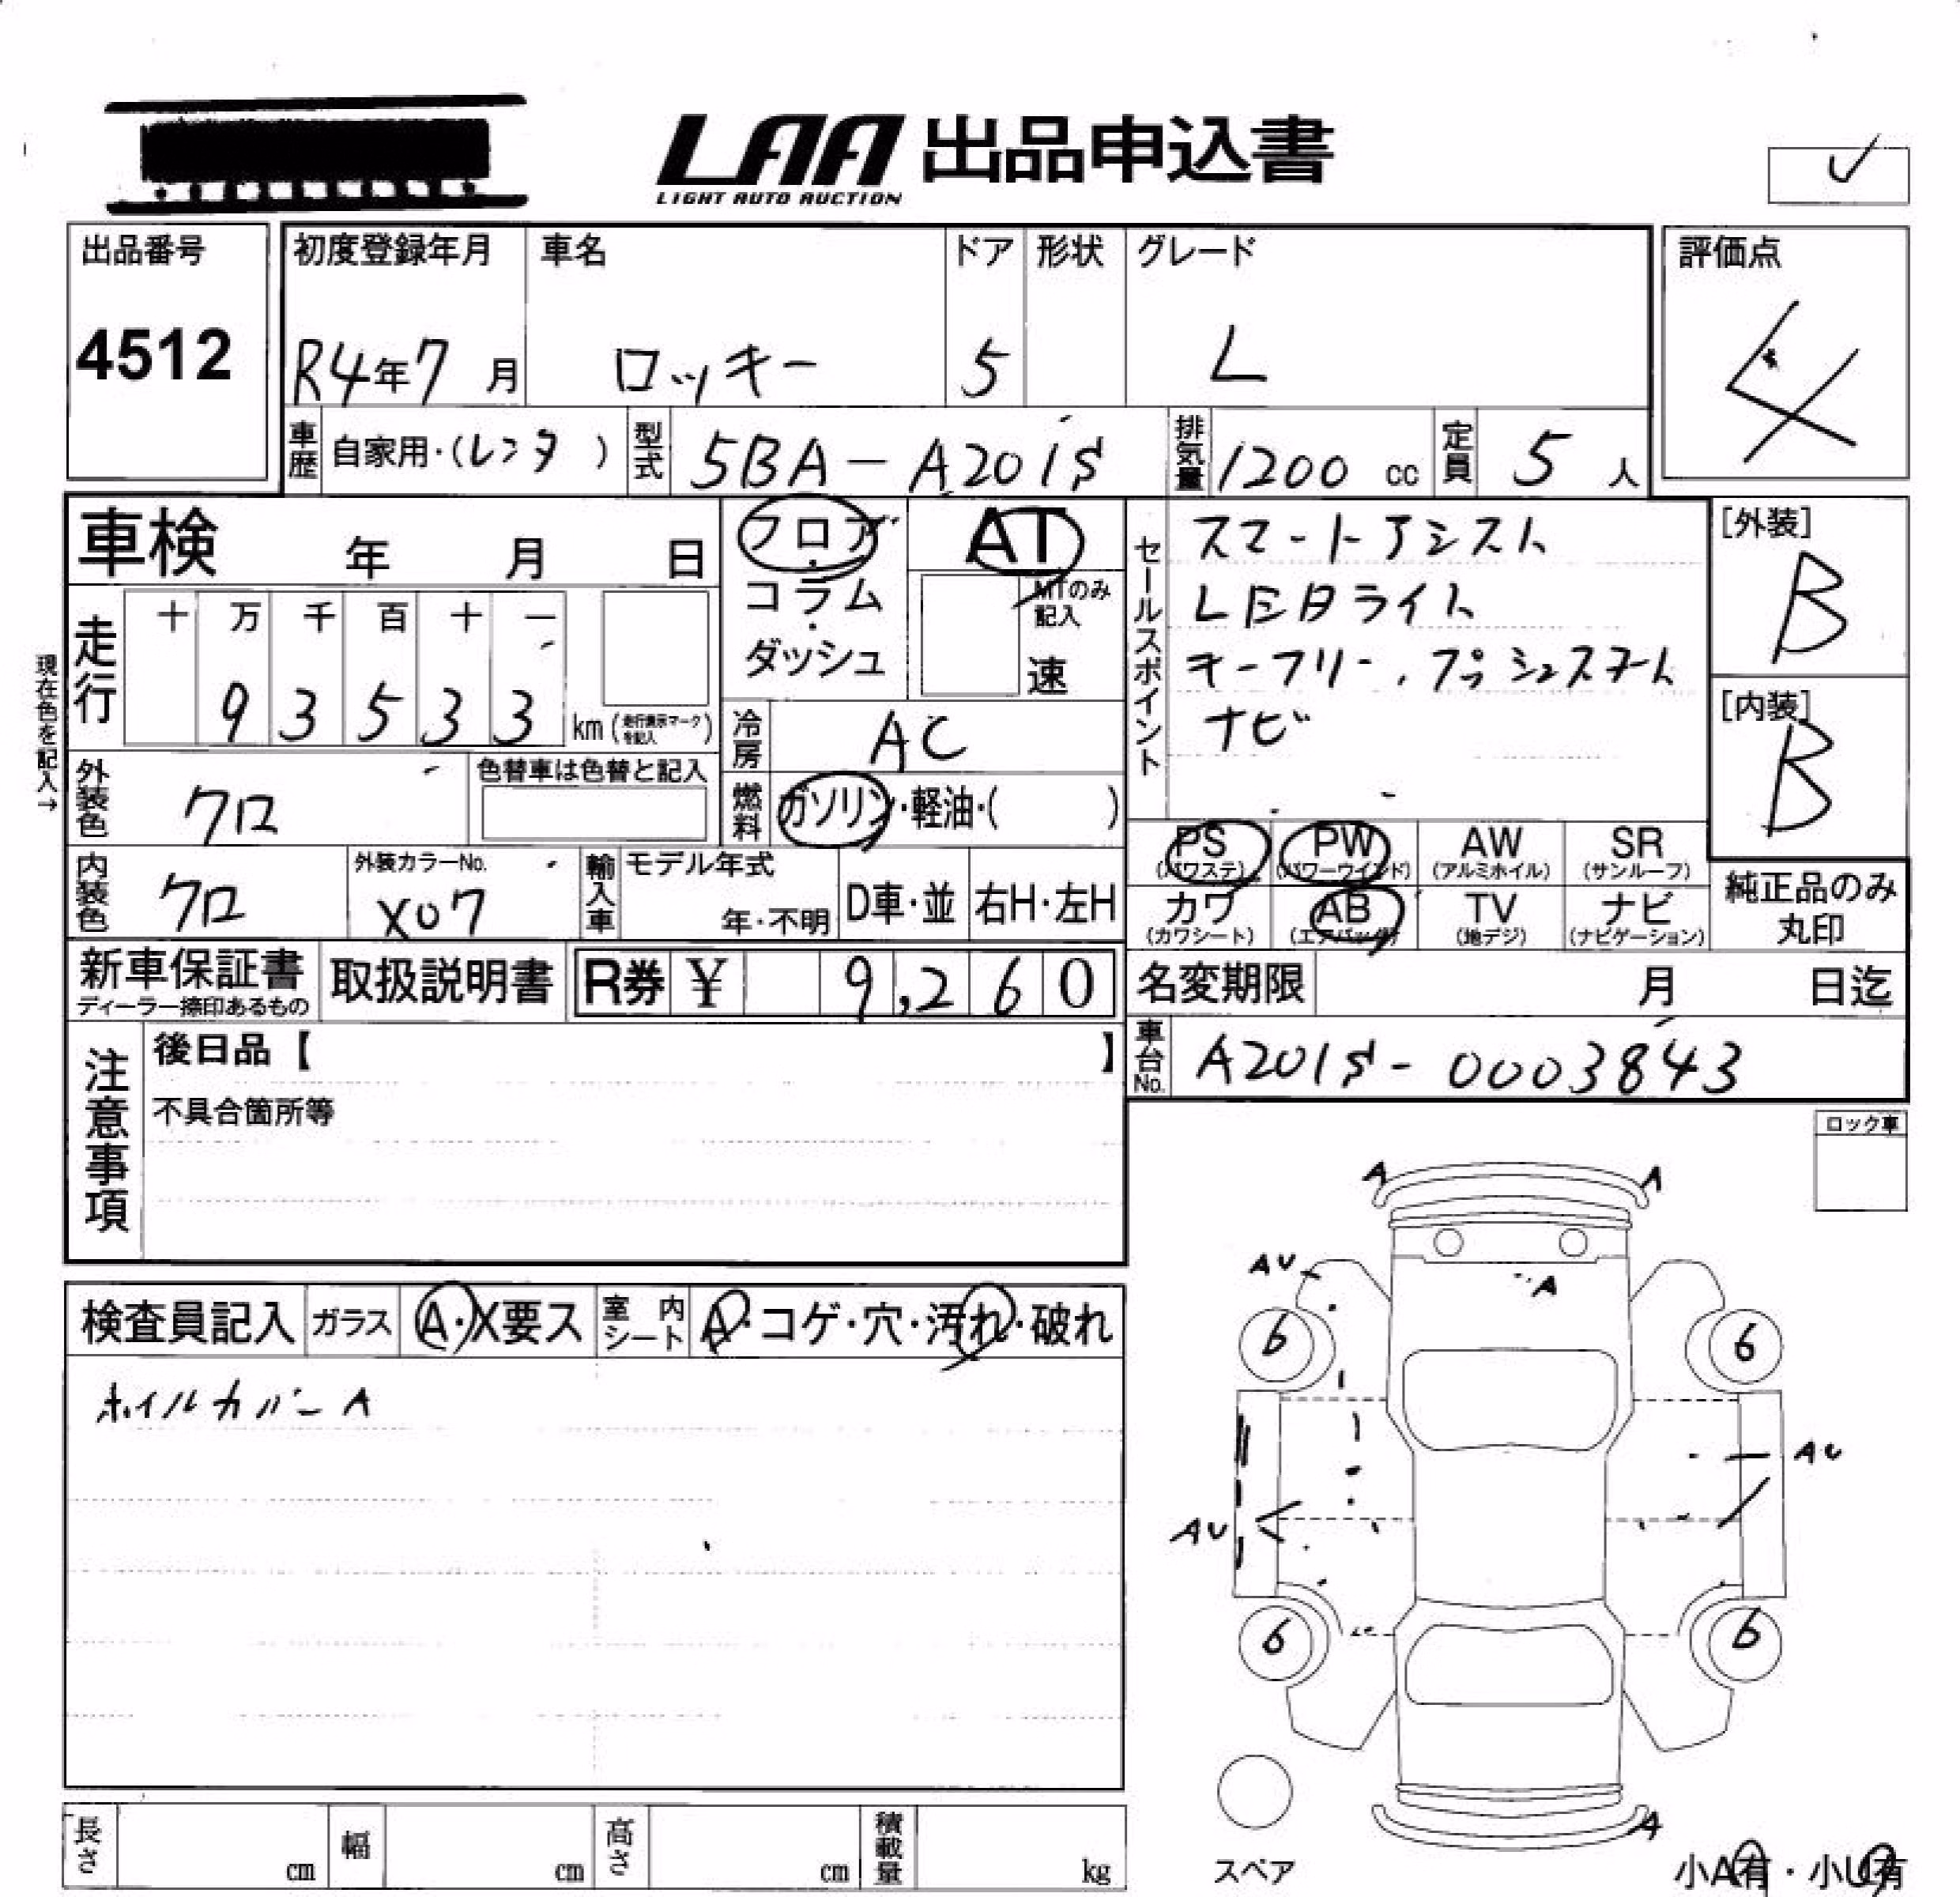 LAA 出品申込書
LIGHT AUTO AUCTION
出品番号
4512
初度登録年月
R4年7月
車名
ロッキー
ドア
5
形状
グレード
L
評価点
4
車歴
自家用・(レンタ)
型式
5BA-A201S
排気量
1200 cc
定員
5人
車検 年 月 日
フロア・
コラム・
ダッシュ
AT
MTのみ
記入
速
セールスポイント
スマートアシスト
LEDライト
キーフリー、プッシュスタート
ナビ
[外装]
B
[内装]
B
現在色を記入→
走行
十 万 千 百 十 一
9 3 5 3 3 km (走行表示マークを記入)
冷房
AC
外装色
クロ
色替車は色替と記入
燃料
ガソリン・軽油・( )
内装色
クロ
外装カラーNo.
X07
輸入車
モデル年式
年・不明
D車・並
右H・左H
PS
(パワステ)
PW
(パワーウインド)
AW
(アルミホイル)
SR
(サンルーフ)
カワ
(カワシート)
AB
(エアバッグ)
TV
(地デジ)
ナビ
(ナビゲーション)
純正品のみ
丸印
新車保証書
ディーラー捺印あるもの
取扱説明書
R券 ¥ 9,260
名変期限 月 日迄
注意事項
後日品【 】
不具合箇所等
車台No.
A201S-0003843
ロック車
検査員記入
ガラス
A・X要ス
室内シート
A・コゲ・穴・汚れ・破れ
ホイルカバーA
A A
AU
A
6 6
AU
AU
6 6
A
スペア
小A有・小U有
長さ cm
幅 cm
高さ cm
積載量 kg